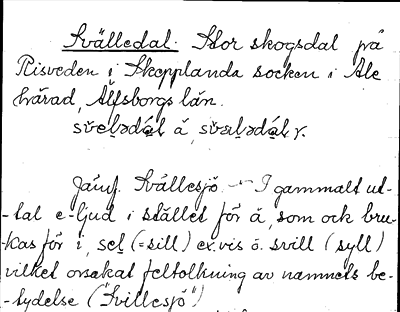 Svälledal. Stor skogsdal på
Risveden i Skepplanda socken i Ale
härad, Älfsborgs län.
svelədál ä, svælədál y.
Jämf. Svällesjö. – I gammalt ut-
-tal e-ljud i stället för ä, som ock bru-
-kas för i, sel (= sill) ex.vis o. svill (syll)
vilket orsakat feltolkning av namnets be-
-tydelse ("Svillesjö")